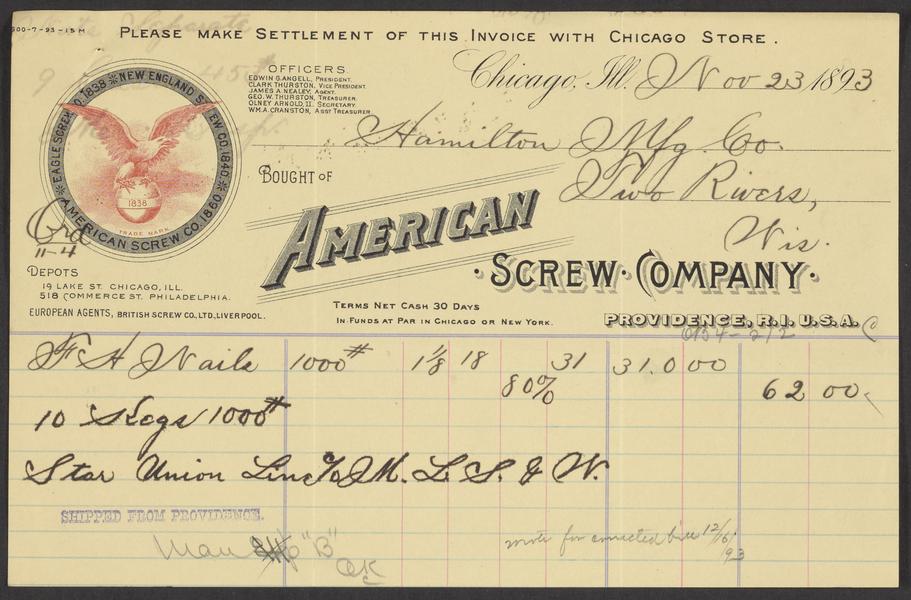 500-7-93-15M
PLEASE MAKE SETTLEMENT OF THIS INVOICE WITH CHICAGO STORE.
EAGLE SCREW CO. 1838 * NEW ENGLAND SCREW CO. 1840 * AMERICAN SCREW CO. 1860 *
1838
TRADE MARK
OFFICERS.
EDWIN G. ANGELL, PRESIDENT.
CLARK THURSTON, VICE PRESIDENT.
JAMES A. NEALEY, AGENT.
GEO. W. THURSTON, TREASURER.
OLNEY ARNOLD, II. SECRETARY.
WM. A. CRANSTON, ASST TREASURER.
Chicago, Ill. Nov 23 1893
Hamilton Mfg. Co.
Two Rivers,
Wis.
BOUGHT OF
AMERICAN
SCREW COMPANY.
PROVIDENCE, R.I. U.S.A.
Ord
11-4
DEPOTS
19 LAKE ST. CHICAGO, ILL.
518 COMMERCE ST. PHILADELPHIA.
EUROPEAN AGENTS, BRITISH SCREW CO., LTD., LIVERPOOL.
TERMS NET CASH 30 DAYS
IN FUNDS AT PAR IN CHICAGO OR NEW YORK.
F H Nails 1000# 1 1/8 18 31 31.0 00
80% 62 00
10 Kegs 1000#
Star Union Line To M. L. S. & W.
SHIPPED FROM PROVIDENCE.
"B"
OK
wrote for corrected bill 12/16/93